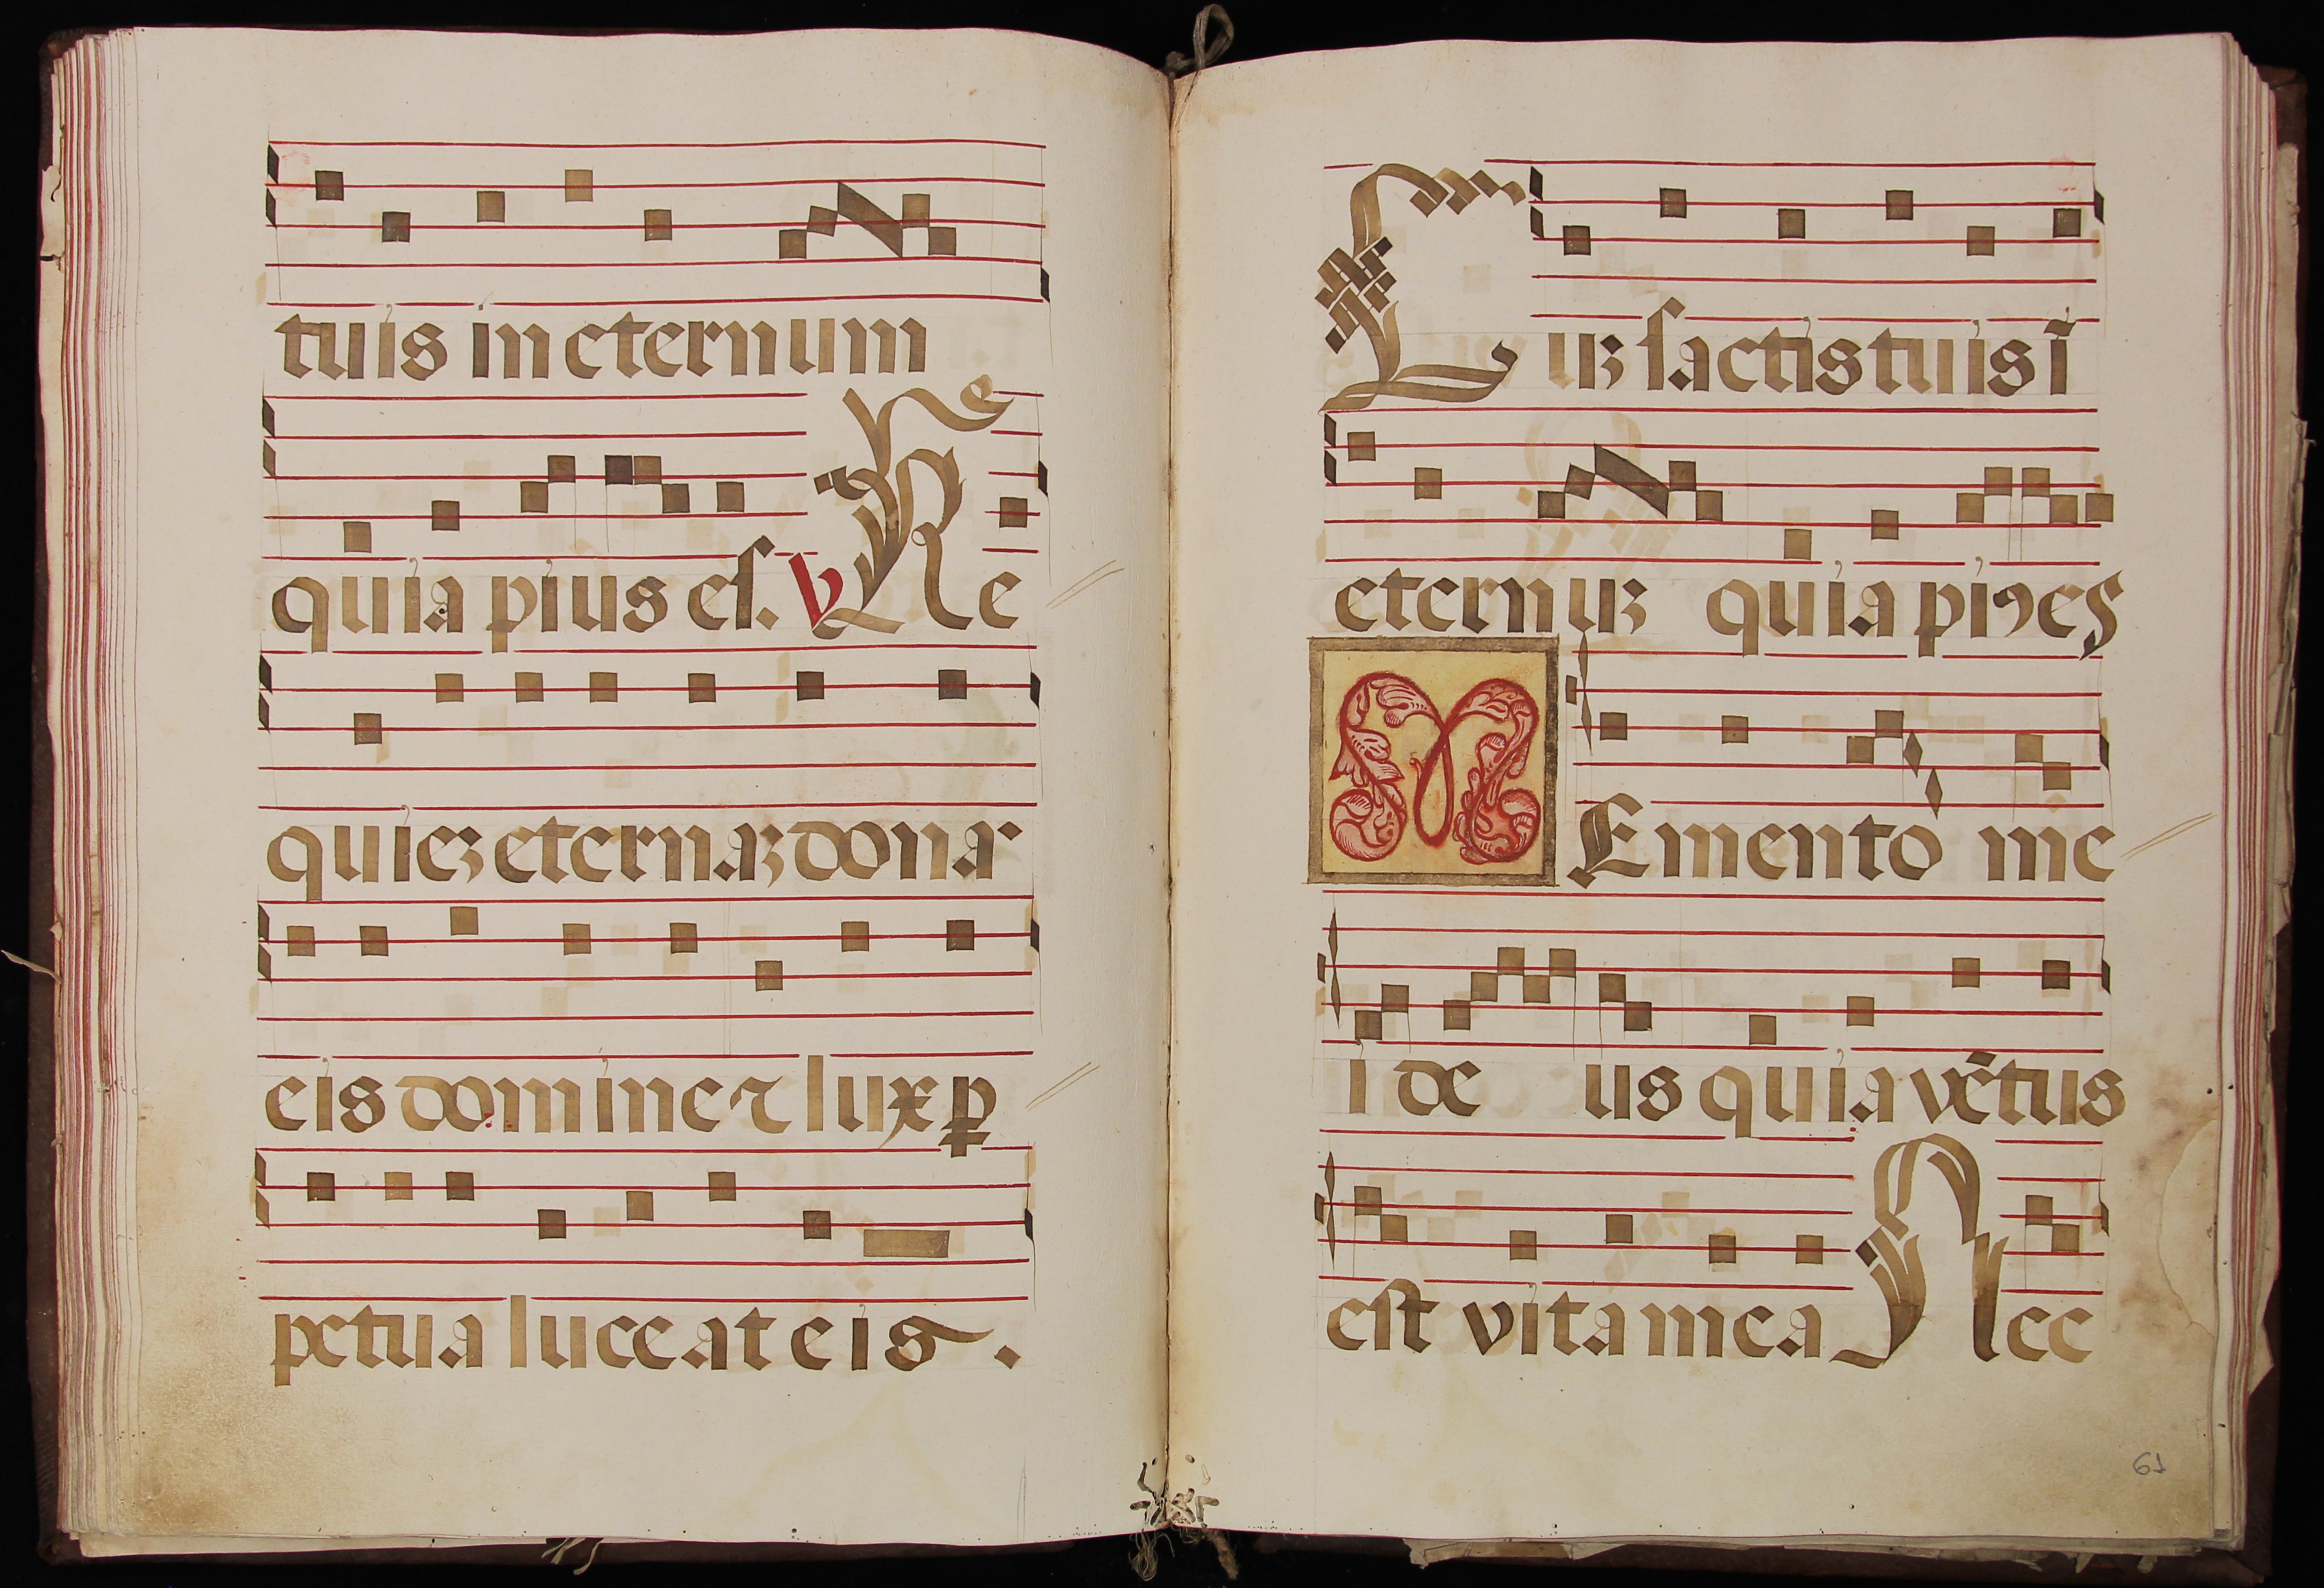 tuis in eternum
quia pius es. V Re
quieʒ eternaʒ dona
eis domine ⁊ lux ꝑ
petua luceat eis.
Luʒ sactis tuis ī
eternuʒ quia piꝯ es
MEmento me
i deus quia vētus
est vita mea Nec
61